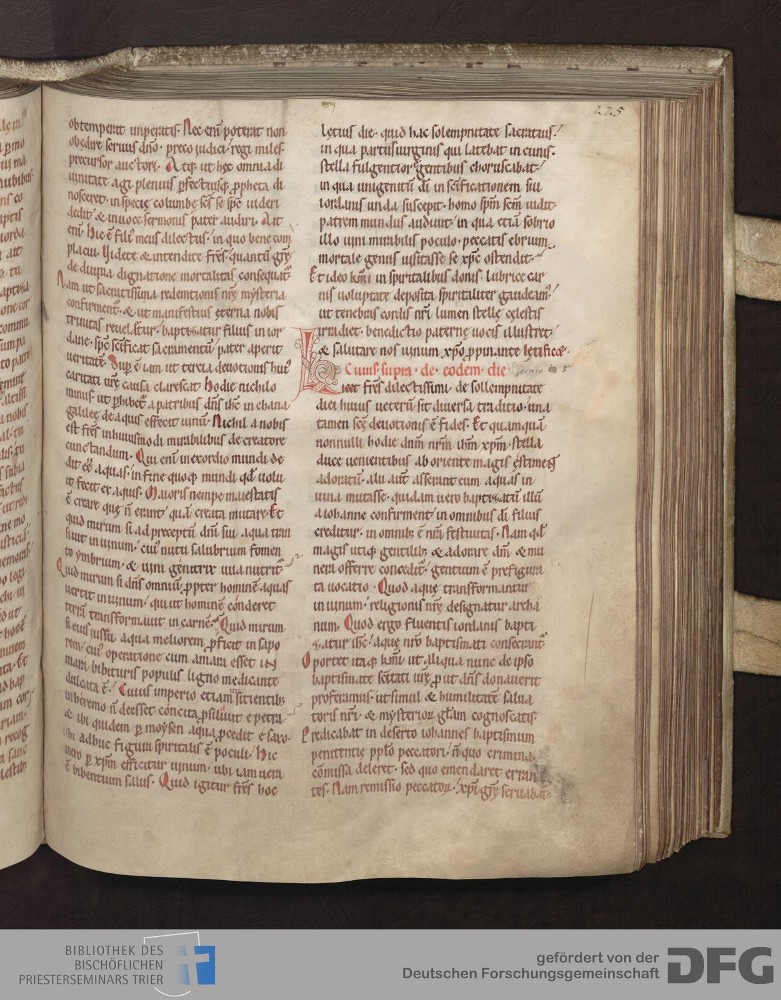 225
obtemperat imperatis. Nec eni͂ poterat non
obedire seruus dn̄o. preco iudici. regi miles.
precursor auctori. Atq; ut hęc omnia di
uinitate agi plenius ꝑfectiusq; ꝓpheta di
nosceret. in specie columbę sc̄s se sp̄c uideri
dedit. & in uoce sermonis pater audiri. Ait
eni͂. Hic ē filiꝰ meus dilectus. in quo bene com
placui. Uidete & intendite fr̄s. quantū
de diuina dignatione mortalitas consequat᷑.
Nam ut sacratissima redemtionis nr̄ę mẏsteria
confirment᷑. & ut manifestius ęterna nobis
trinitas reuelet᷑ur. baptizatur filius in ior
dane. sp̄c sc̄ificat sacramentū. pater aperit
ueritatē. ē iam ut tercia deuotionis huiꝰ
caritati ur̄ę causa clarescat. Hodie nichilo
minus ut ꝑhibet᷑ a patribus dn̄s ih̄c in chana
galileę de aquis effecit uinū. Nichil a nobis
est fr̄s in huiusmodi mirabilibus de creatore
cunctandum. Qui eni͂ in exordio mundi de
dit eē aquas. in fine quoq; mundi qd̄ uolu
it fecit ex aquis. Maioris nempe maiestatis
ē creare quę n̄ erant. quā creata mutare. Et
quid mirum si ad preceptū dn̄i sui aqua tran
siuit in uinum. cuiꝰ nutu salubrium fomen
to ẏmbrium. & uini genitrix uua nutrit᷑.
Quid mirum si dn̄s omniū ꝓpter hominē aquas
uertit in uinum. qui ut hominē conderet
terrā transformauit in carnē. Quid mirum
si eius iussu aqua meliorem ꝓficit in sapo
rem. cuiꝰ operatione cum amara esset in
mari bibituris populis ligno medicante
dulcata ē. Cuius imperio etiam sitientib;
in heremo n̄ deesset concita ꝓsiluit e petra.
& ibi quidem ꝑ moẏsen aqua ꝓcedit e saxo.
ubi adhuc figura spiritalis ē poculi. Hic
uero ꝑ xp̄m efficitur uinum. ubi iam uera
ē bibentium salus. Quid igitur fr̄s hoc
lętius die. quid hac solempnitate sacratius.
in qua partus uirginis qui latebat in cunis.
stella fulgentior gentibus choruscabat.
in qua unigenitū di͂ in sc̄ificationem sui
iordanis unda suscepit. homo sp̄m sc̄m uidit.
patrem mundus audiuit. in qua etiā sobrio
illo uini mirabilis poculo. peccatis ebrium
mortale genus uisitasse se xp̄c ostendit.
Et ideo kmi͂ in spiritalibus donis. lubrice car
nis uoluptate deposita spiritaliter gaudeam᷑.
ut tenebras cordis nr̄i lumen stellę cęlestis
irradiet. benedictio paternę uocis illustret.
& salutare nos uinum xp̄o ꝓpinante lętificet.
Cuius supra. de eodem die.
Licet fr̄s dilectissimi. de sollempnitate
diei huius ueterū sit diuersa traditio. una
tamen sc̄ę deuotionis ē fides. Et quamquā
nonnulli hodie dn̄m nr̄m ih̄m xp̄m. stella
duce uenientibus ab oriente magis ęstiment
adoratū. alii aut͂ asserant eum aquas in
uina mutasse. quidam uero baptizatū illū
a iohanne confirment. in omnibus di͂ filius
creditur. in omnib; ē nr̄a festiuitas. Nam qd̄
magis utiq; gentilib; & adorare dn̄m & mu
nera offerre concedit᷑. gentium ē prefigura
ta uocatio. Quod aquę transformantur
in uinum. religionis nr̄ę designatur archa
num. Quod ergo fluentis iordanis bapti
zatur ih̄c. aquę nr̄o baptismati consecrant᷑.
Oportet itaq; kmi͂ ut aliqua nunc de ipso
baptismate sectati uir̄ ꝓ ut dn̄s donauerit
proferamus. ut simul & humilitatē salua
toris nr̄i. & mẏsteriorꝝ gl̄iam cognoscatis.
Predicabat in deserto iohannes baptismum
penitentię pplo peccatori. n̄ quo crimina
cōmissa deleret. sed quo emendaret erran
tes. Nam remissio peccatorꝝ. xp̄i seruabat᷑
BIBLIOTHEK DES
BISCHÖFLICHEN
PRIESTERSEMINARS TRIER
gefördert von der
Deutschen Forschungsgemeinschaft
DFG